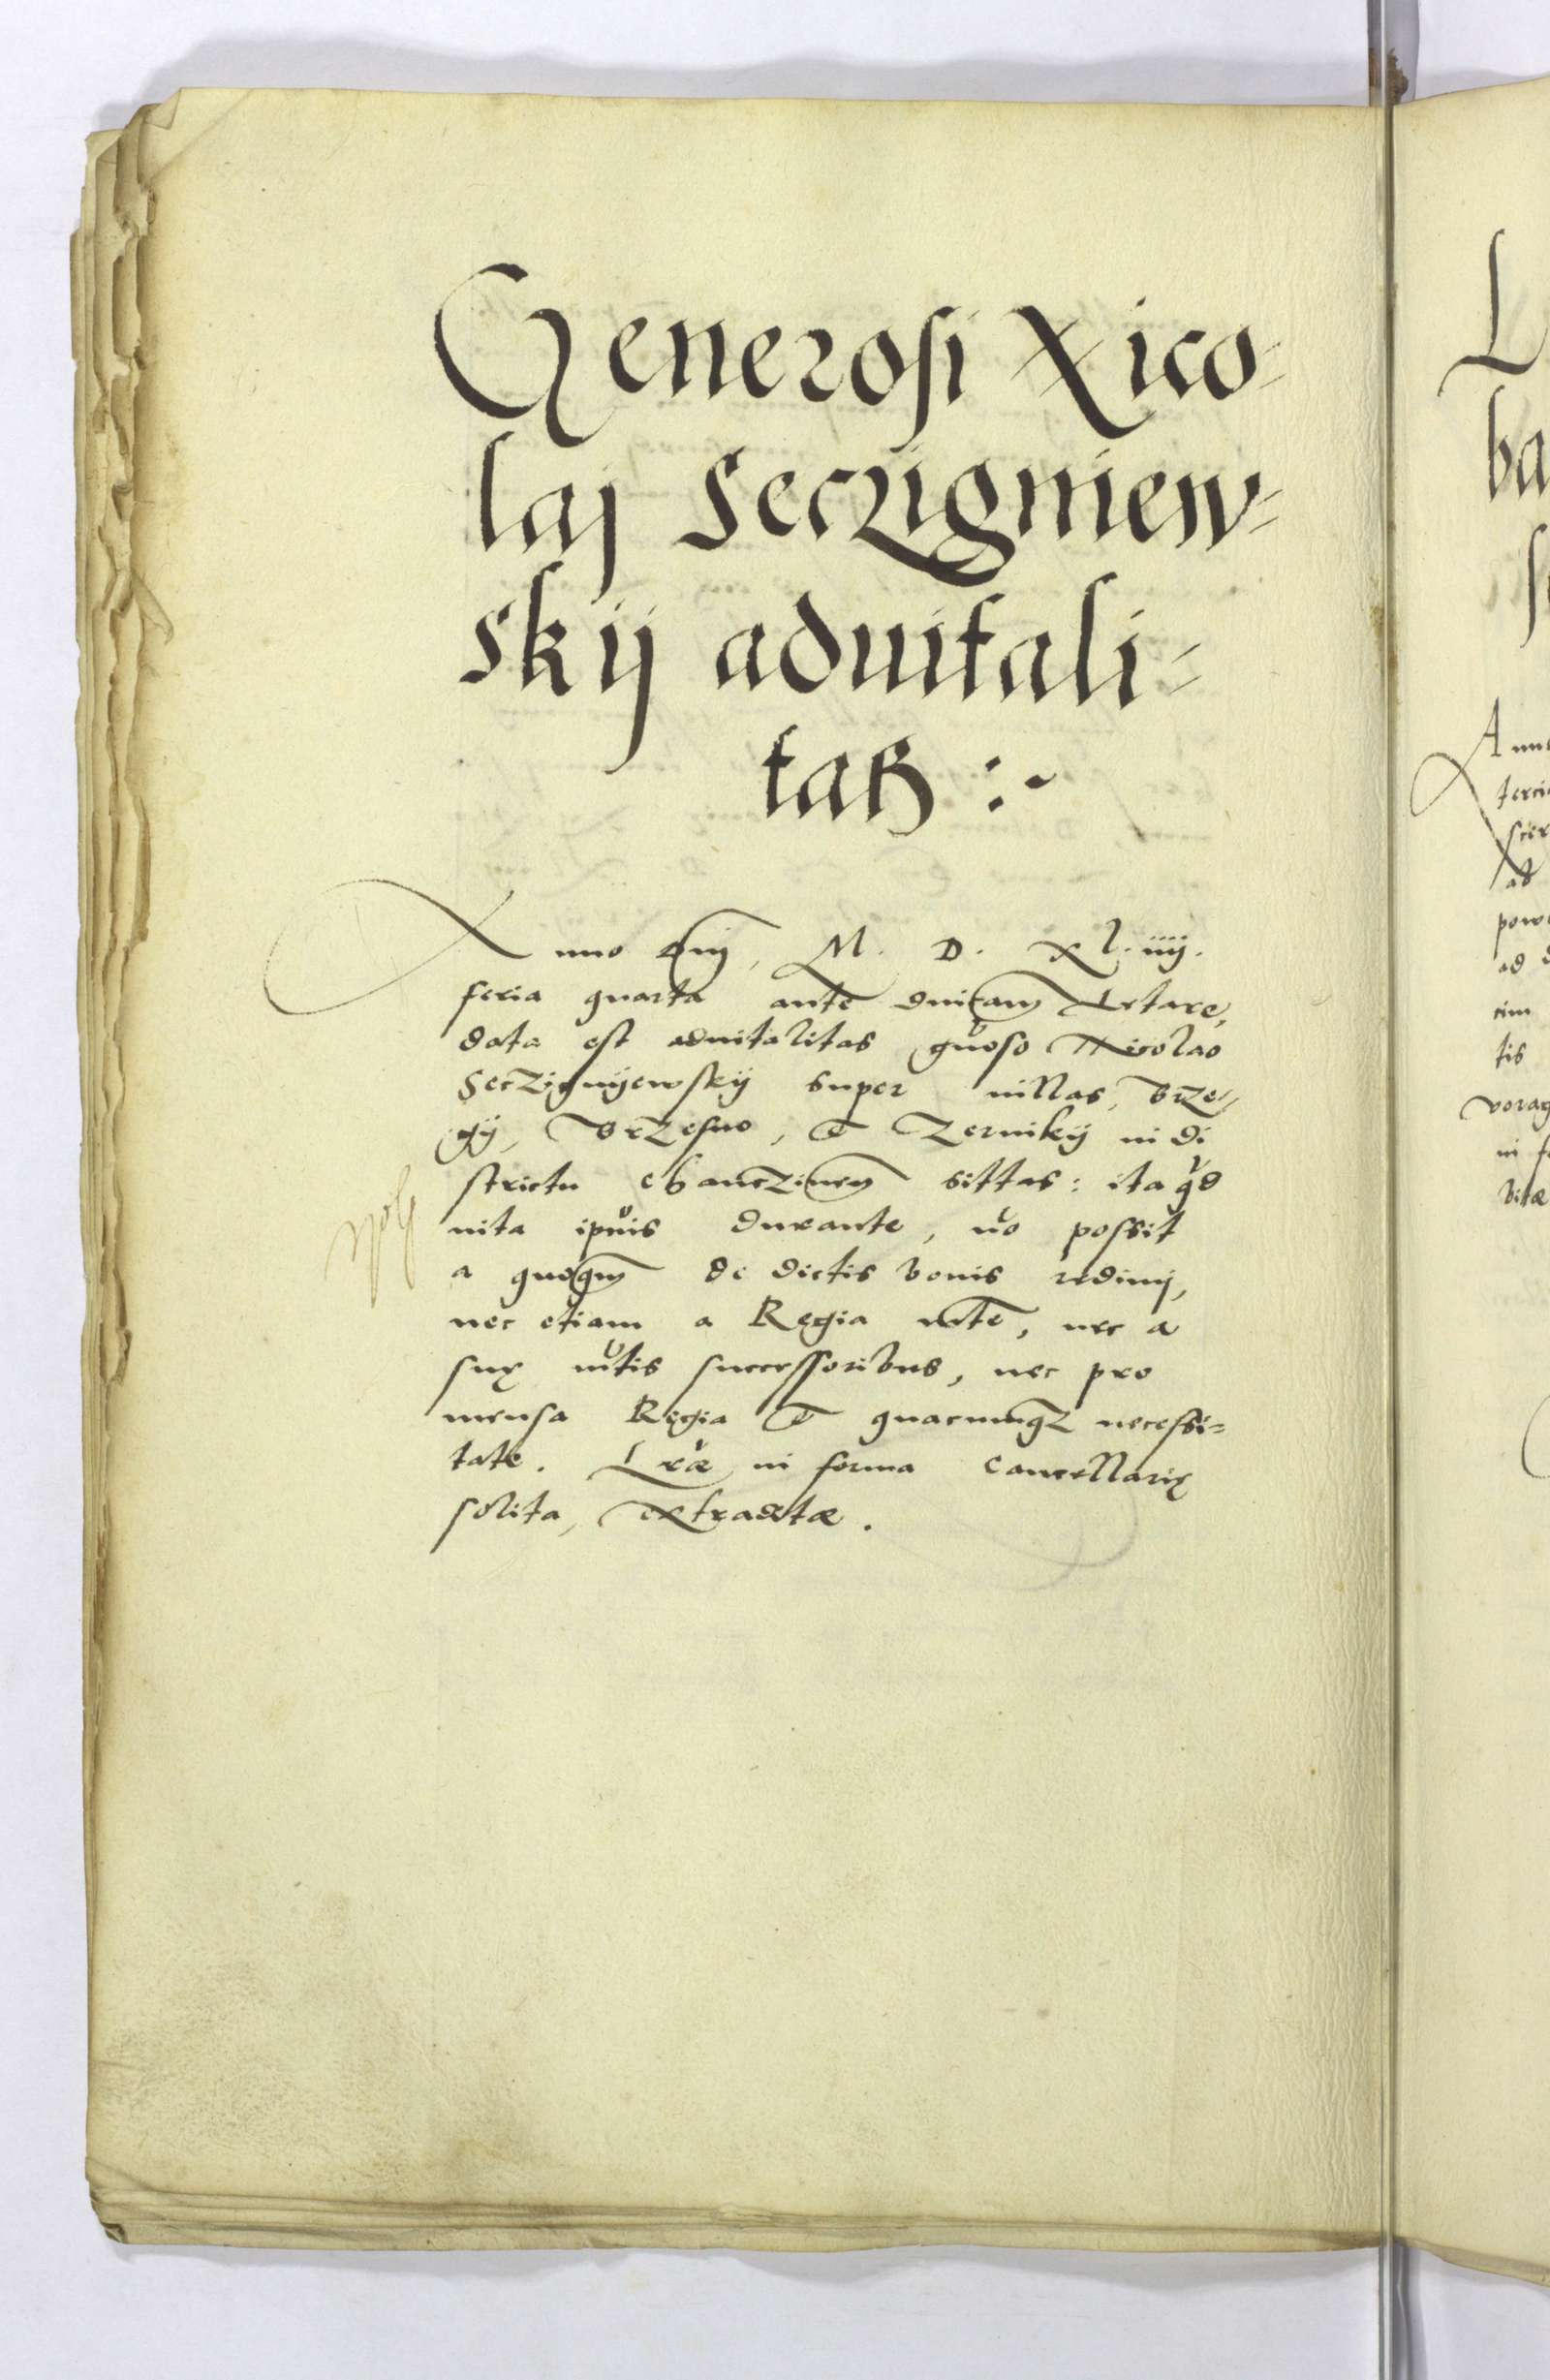 Generosi Nico-
laj Seczigniew-
skij aduitali-
tas :~
Anno dnj, M. D. Xl. iiij.
feria quarta ante dnicam Letare,
data est aduitalitas gnoso Nicolao
Seczignijewskij super uillas, Brze-
gij, Brzesno, et Zernikij in di
strictu Chanczinen sittas: ita qd
uita ipius durante, no possit
a quoqm de dictis bonis redimj,
nec etiam a Regia mte, nec a
suę mtis successoribus, nec pro
mensa Regia et quacunqz necessi-
tate. Lræ in forma Cancellarię
solita, extraditæ.
L
ba
A nn
terci
ab
pow
ad d
cim
tis
vorag
in f
vitæ